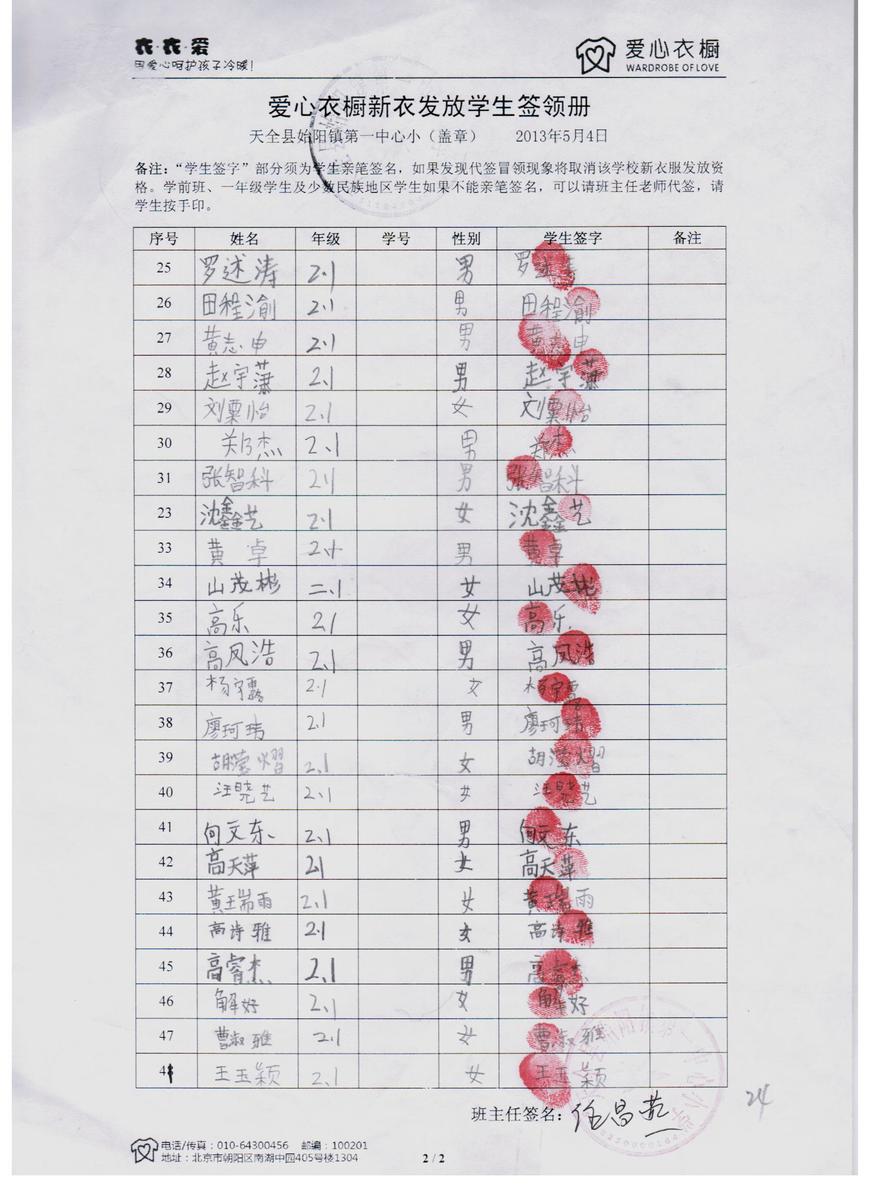 衣·衣·爱
用爱心呵护孩子冷暖!
爱心衣橱
WARDROBE OF LOVE
爱心衣橱新衣发放学生签领册
天全县始阳镇第一中心小（盖章） 2013年5月4日
备注：“学生签字”部分须为学生亲笔签名，如果发现代签冒领现象将取消该学校新衣服发放资
格。学前班、一年级学生及少数民族地区学生如果不能亲笔签名，可以请班主任老师代签，请
学生按手印。
序号 姓名 年级 学号 性别 学生签字 备注
25 罗述涛 2.1 男 罗述涛
26 田程渝 2.1 男 田程渝
27 黄志申 2.1 男 黄志申
28 赵宇萧 2.1 男 赵宇萧
29 刘粟怡 2.1 女 刘粟怡
30 郑杰 2.1 男 郑杰
31 张智科 2.1 男 张智科
23 沈鑫艺 2.1 女 沈鑫艺
33 黄卓 2.1 男 黄卓
34 山茂彬 二.1 女 山茂彬
35 高乐 2.1 女 高乐
36 高凤浩 2.1 男 高凤浩
37 杨宇露 2.1 女 杨宇露
38 廖珂玮 2.1 男 廖珂玮
39 胡滢熠 2.1 女 胡滢熠
40 汪晓艺 2.1 女 汪晓艺
41 向文东 2.1 男 向文东
42 高天萍 2.1 女 高天萍
43 黄瑞雨 2.1 女 黄瑞雨
44 高诗雅 2.1 女 高诗雅
45 高睿杰 2.1 男 高睿杰
46 解好 2.1 女 解好
47 曹淑雅 2.1 女 曹淑雅
48 王玉颖 2.1 女 王玉颖
班主任签名：徐昌燕
24
电话/传真：010-64300456 邮编：100201
地址：北京市朝阳区南湖中园405号楼1304
2 / 2